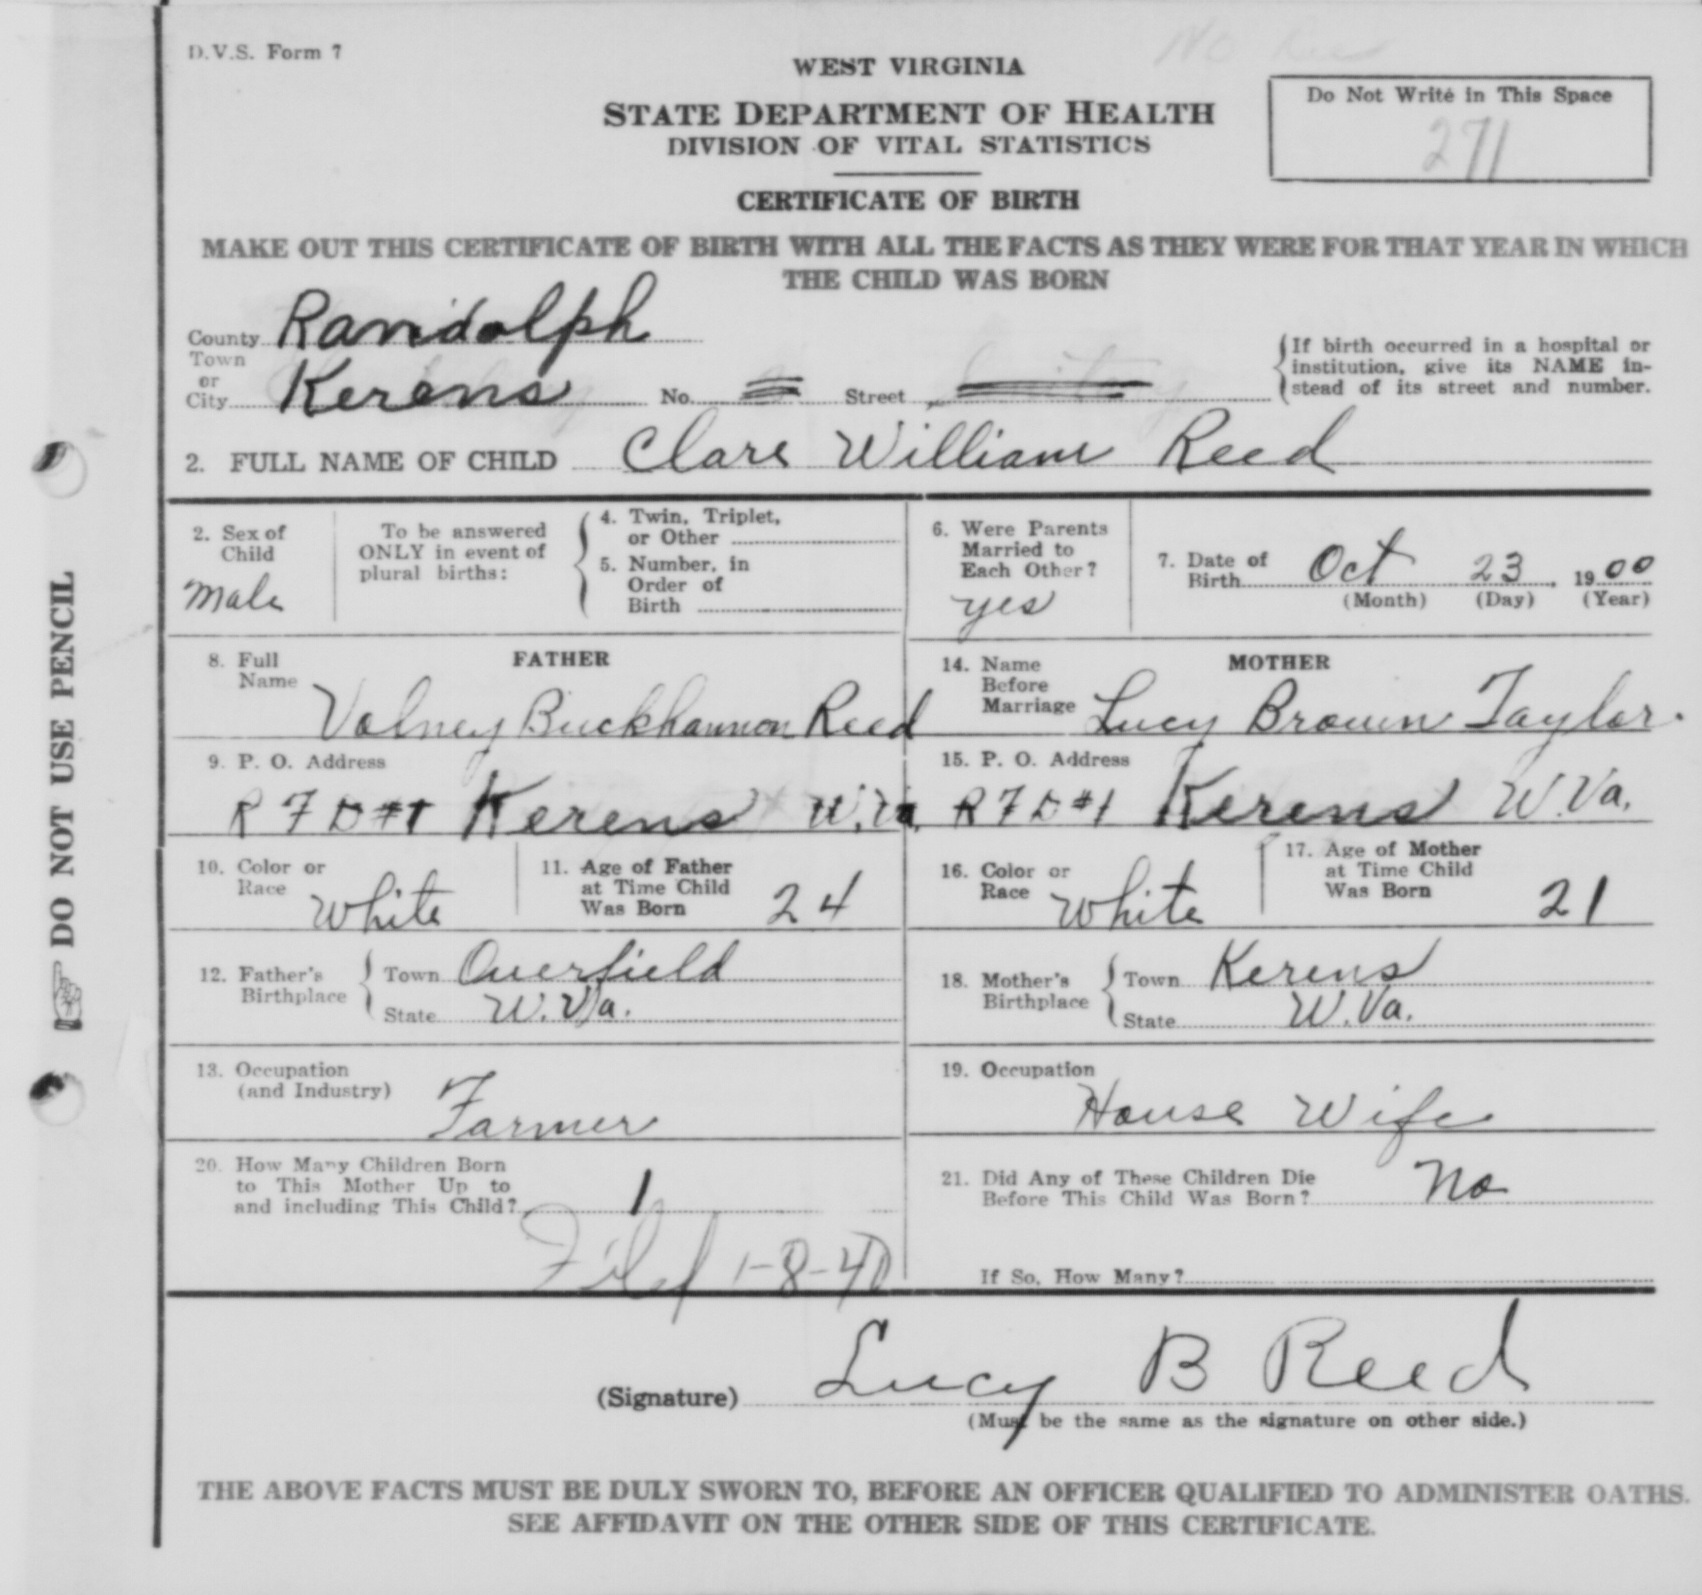 D.V.S. Form 7
WEST VIRGINIA
STATE DEPARTMENT OF HEALTH
DIVISION OF VITAL STATISTICS
Do Not Write in This Space
271
CERTIFICATE OF BIRTH
MAKE OUT THIS CERTIFICATE OF BIRTH WITH ALL THE FACTS AS THEY WERE FOR THAT YEAR IN WHICH
THE CHILD WAS BORN
County Randolph
Town or City Kerens No. Street
If birth occurred in a hospital or
institution, give its NAME in-
stead of its street and number.
2. FULL NAME OF CHILD Clare William Reed
2. Sex of
Child
Male
To be answered
ONLY in event of
plural births:
4. Twin, Triplet,
or Other
5. Number, in
Order of
Birth
6. Were Parents
Married to
Each Other?
yes
7. Date of
Birth Oct 23, 1900
(Month) (Day) (Year)
8. Full
Name
FATHER
Volney Buckhannon Reed
14. Name
Before
Marriage
MOTHER
Lucy Brown Taylor.
9. P. O. Address
R F D #1 Kerens W.Va.
15. P. O. Address
R F D #1 Kerens W.Va.
10. Color or
Race
White
11. Age of Father
at Time Child
Was Born 24
16. Color or
Race
White
17. Age of Mother
at Time Child
Was Born 21
12. Father's
Birthplace
Town Overfield
State W.Va.
18. Mother's
Birthplace
Town Kerens
State W.Va.
13. Occupation
(and Industry)
Farmer
19. Occupation
House Wife
20. How Many Children Born
to This Mother Up to
and including This Child? 1
21. Did Any of These Children Die
Before This Child Was Born? No
Filed 1-8-40
If So, How Many?
(Signature) Lucy B Reed
(Must be the same as the signature on other side.)
THE ABOVE FACTS MUST BE DULY SWORN TO, BEFORE AN OFFICER QUALIFIED TO ADMINISTER OATHS.
SEE AFFIDAVIT ON THE OTHER SIDE OF THIS CERTIFICATE.
DO NOT USE PENCIL